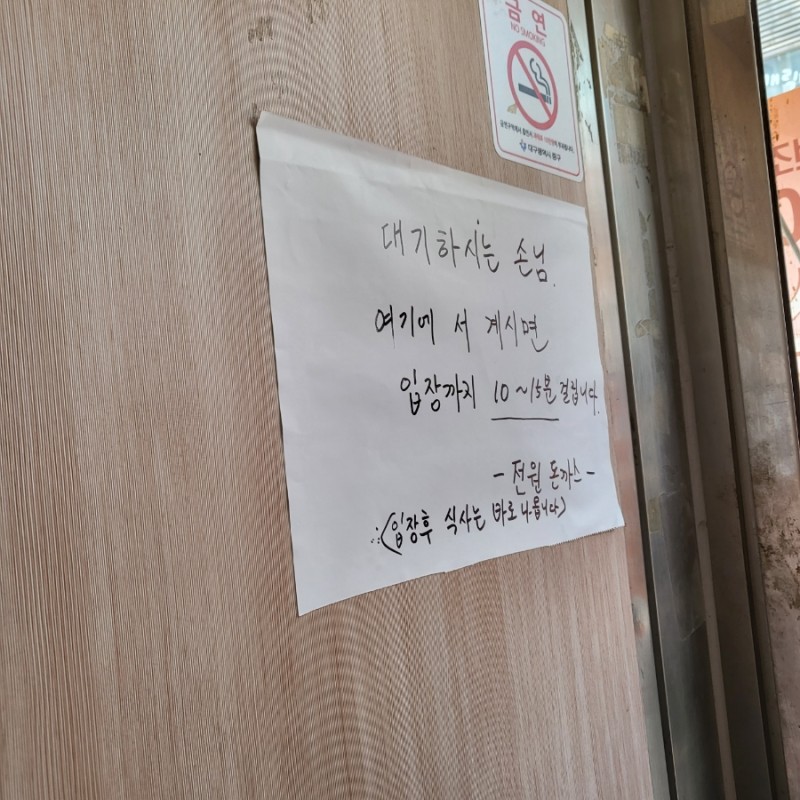 금연
NO SMOKING
대구광역시 중구
대기하시는 손님.
여기에 서 계시면
입장까지 10~15분 걸립니다.
- 전원 돈까스 -
(입장후 식사는 바로 나옵니다)